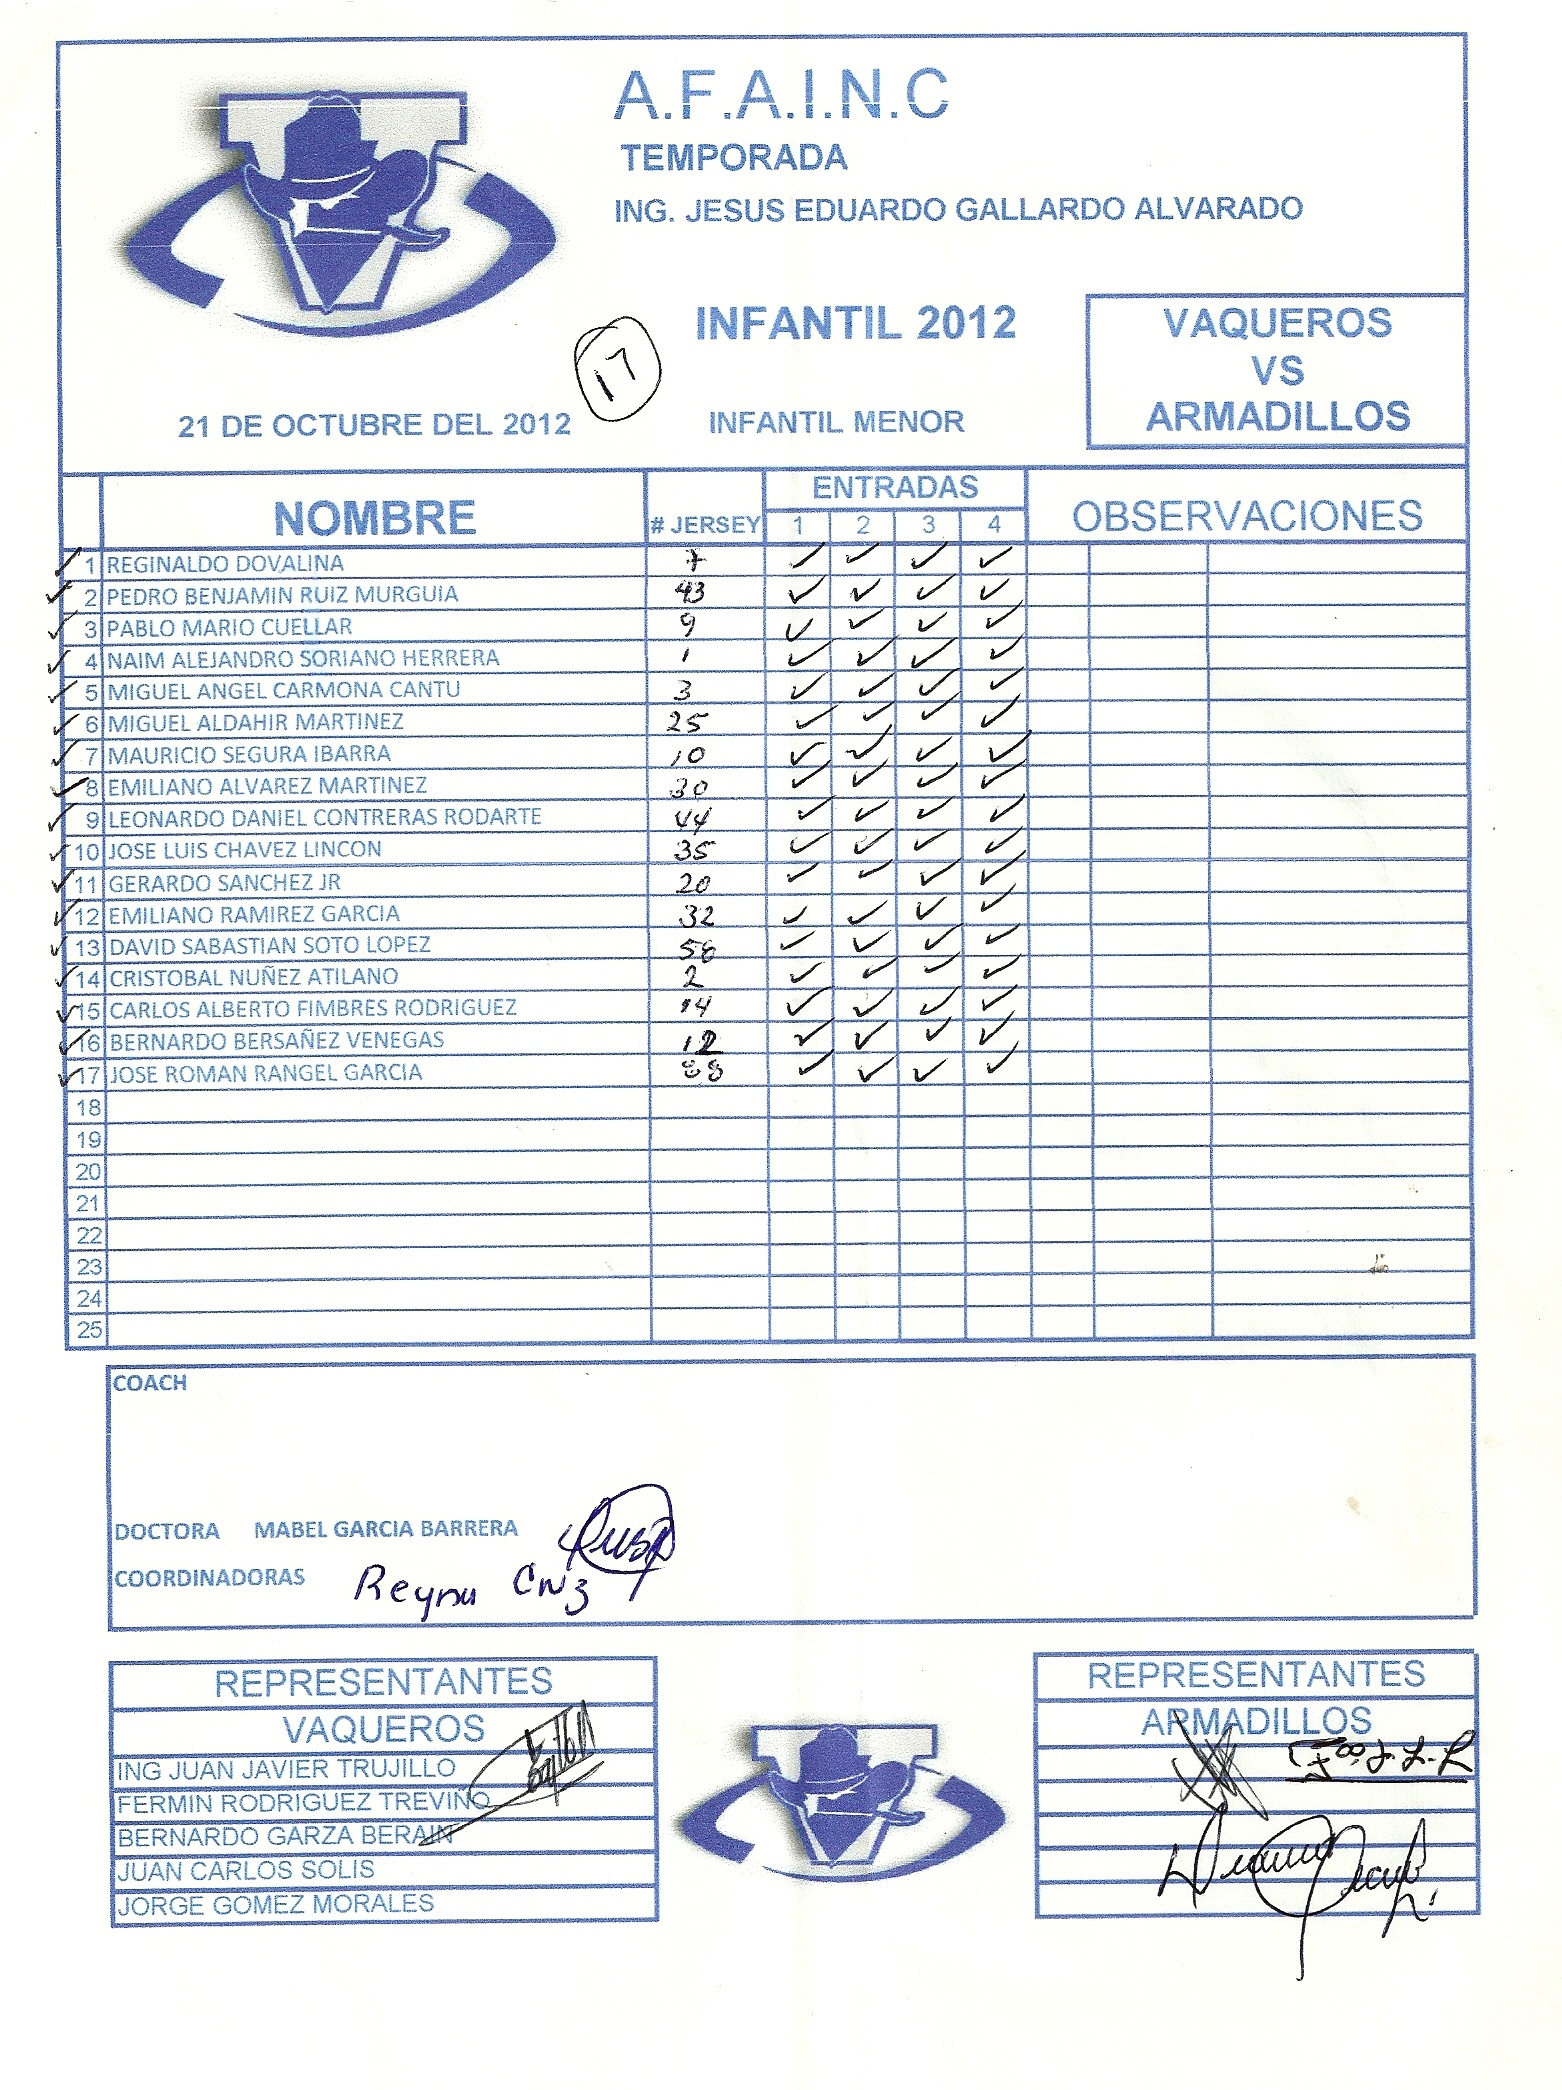 A.F.A.I.N.C
TEMPORADA
ING. JESUS EDUARDO GALLARDO ALVARADO
INFANTIL 2012
VAQUEROS
VS
ARMADILLOS
17
21 DE OCTUBRE DEL 2012
INFANTIL MENOR
NOMBRE # JERSEY ENTRADAS OBSERVACIONES
1 2 3 4
1 REGINALDO DOVALINA 7 ✓ ✓ ✓ ✓
2 PEDRO BENJAMIN RUIZ MURGUIA 43 ✓ ✓ ✓ ✓
3 PABLO MARIO CUELLAR 9 ✓ ✓ ✓ ✓
4 NAIM ALEJANDRO SORIANO HERRERA 1 ✓ ✓ ✓ ✓
5 MIGUEL ANGEL CARMONA CANTU 3 ✓ ✓ ✓ ✓
6 MIGUEL ALDAHIR MARTINEZ 25 ✓ ✓ ✓ ✓
7 MAURICIO SEGURA IBARRA 10 ✓ ✓ ✓ ✓
8 EMILIANO ALVAREZ MARTINEZ 30 ✓ ✓ ✓ ✓
9 LEONARDO DANIEL CONTRERAS RODARTE 44 ✓ ✓ ✓ ✓
10 JOSE LUIS CHAVEZ LINCON 35 ✓ ✓ ✓ ✓
11 GERARDO SANCHEZ JR 20 ✓ ✓ ✓ ✓
12 EMILIANO RAMIREZ GARCIA 32 ✓ ✓ ✓ ✓
13 DAVID SABASTIAN SOTO LOPEZ 58 ✓ ✓ ✓ ✓
14 CRISTOBAL NUÑEZ ATILANO 2 ✓ ✓ ✓ ✓
15 CARLOS ALBERTO FIMBRES RODRIGUEZ 14 ✓ ✓ ✓ ✓
16 BERNARDO BERSAÑEZ VENEGAS 12 ✓ ✓ ✓ ✓
17 JOSE ROMAN RANGEL GARCIA 88 ✓ ✓ ✓ ✓
18
19
20
21
22
23
24
25
COACH
DOCTORA MABEL GARCIA BARRERA
COORDINADORAS Reyna
REPRESENTANTES
VAQUEROS
ING JUAN JAVIER TRUJILLO
FERMIN RODRIGUEZ TREVIÑO
BERNARDO GARZA BERAIN
JUAN CARLOS SOLIS
JORGE GOMEZ MORALES
REPRESENTANTES
ARMADILLOS